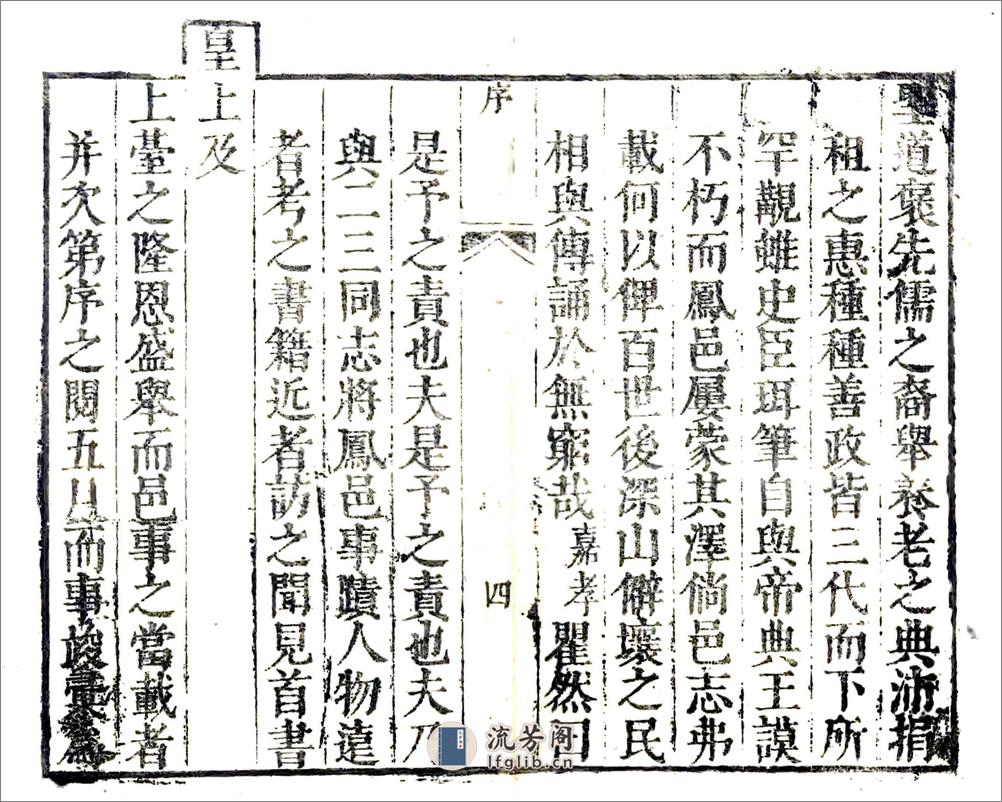 聖道褒先儒之裔舉養老之典沛捐
租之惠種種善政皆三代而下所
罕觀雖史臣珥筆自與帝典王謨
不朽而鳳邑屢蒙其澤倘邑志弗
載何以俾百世後深山僻壤之民
相與傳誦於無窮哉嘉孝瞿然曰
序
四
是予之責也夫是予之責也夫乃
與二三同志將鳳邑事蹟人物遠
者考之書籍近者訪之聞見首書
皇上及
上臺之隆恩盛舉而邑事之當載者
并次第序之閱五月而事竣彙為
流芳阁
lfglib.cn